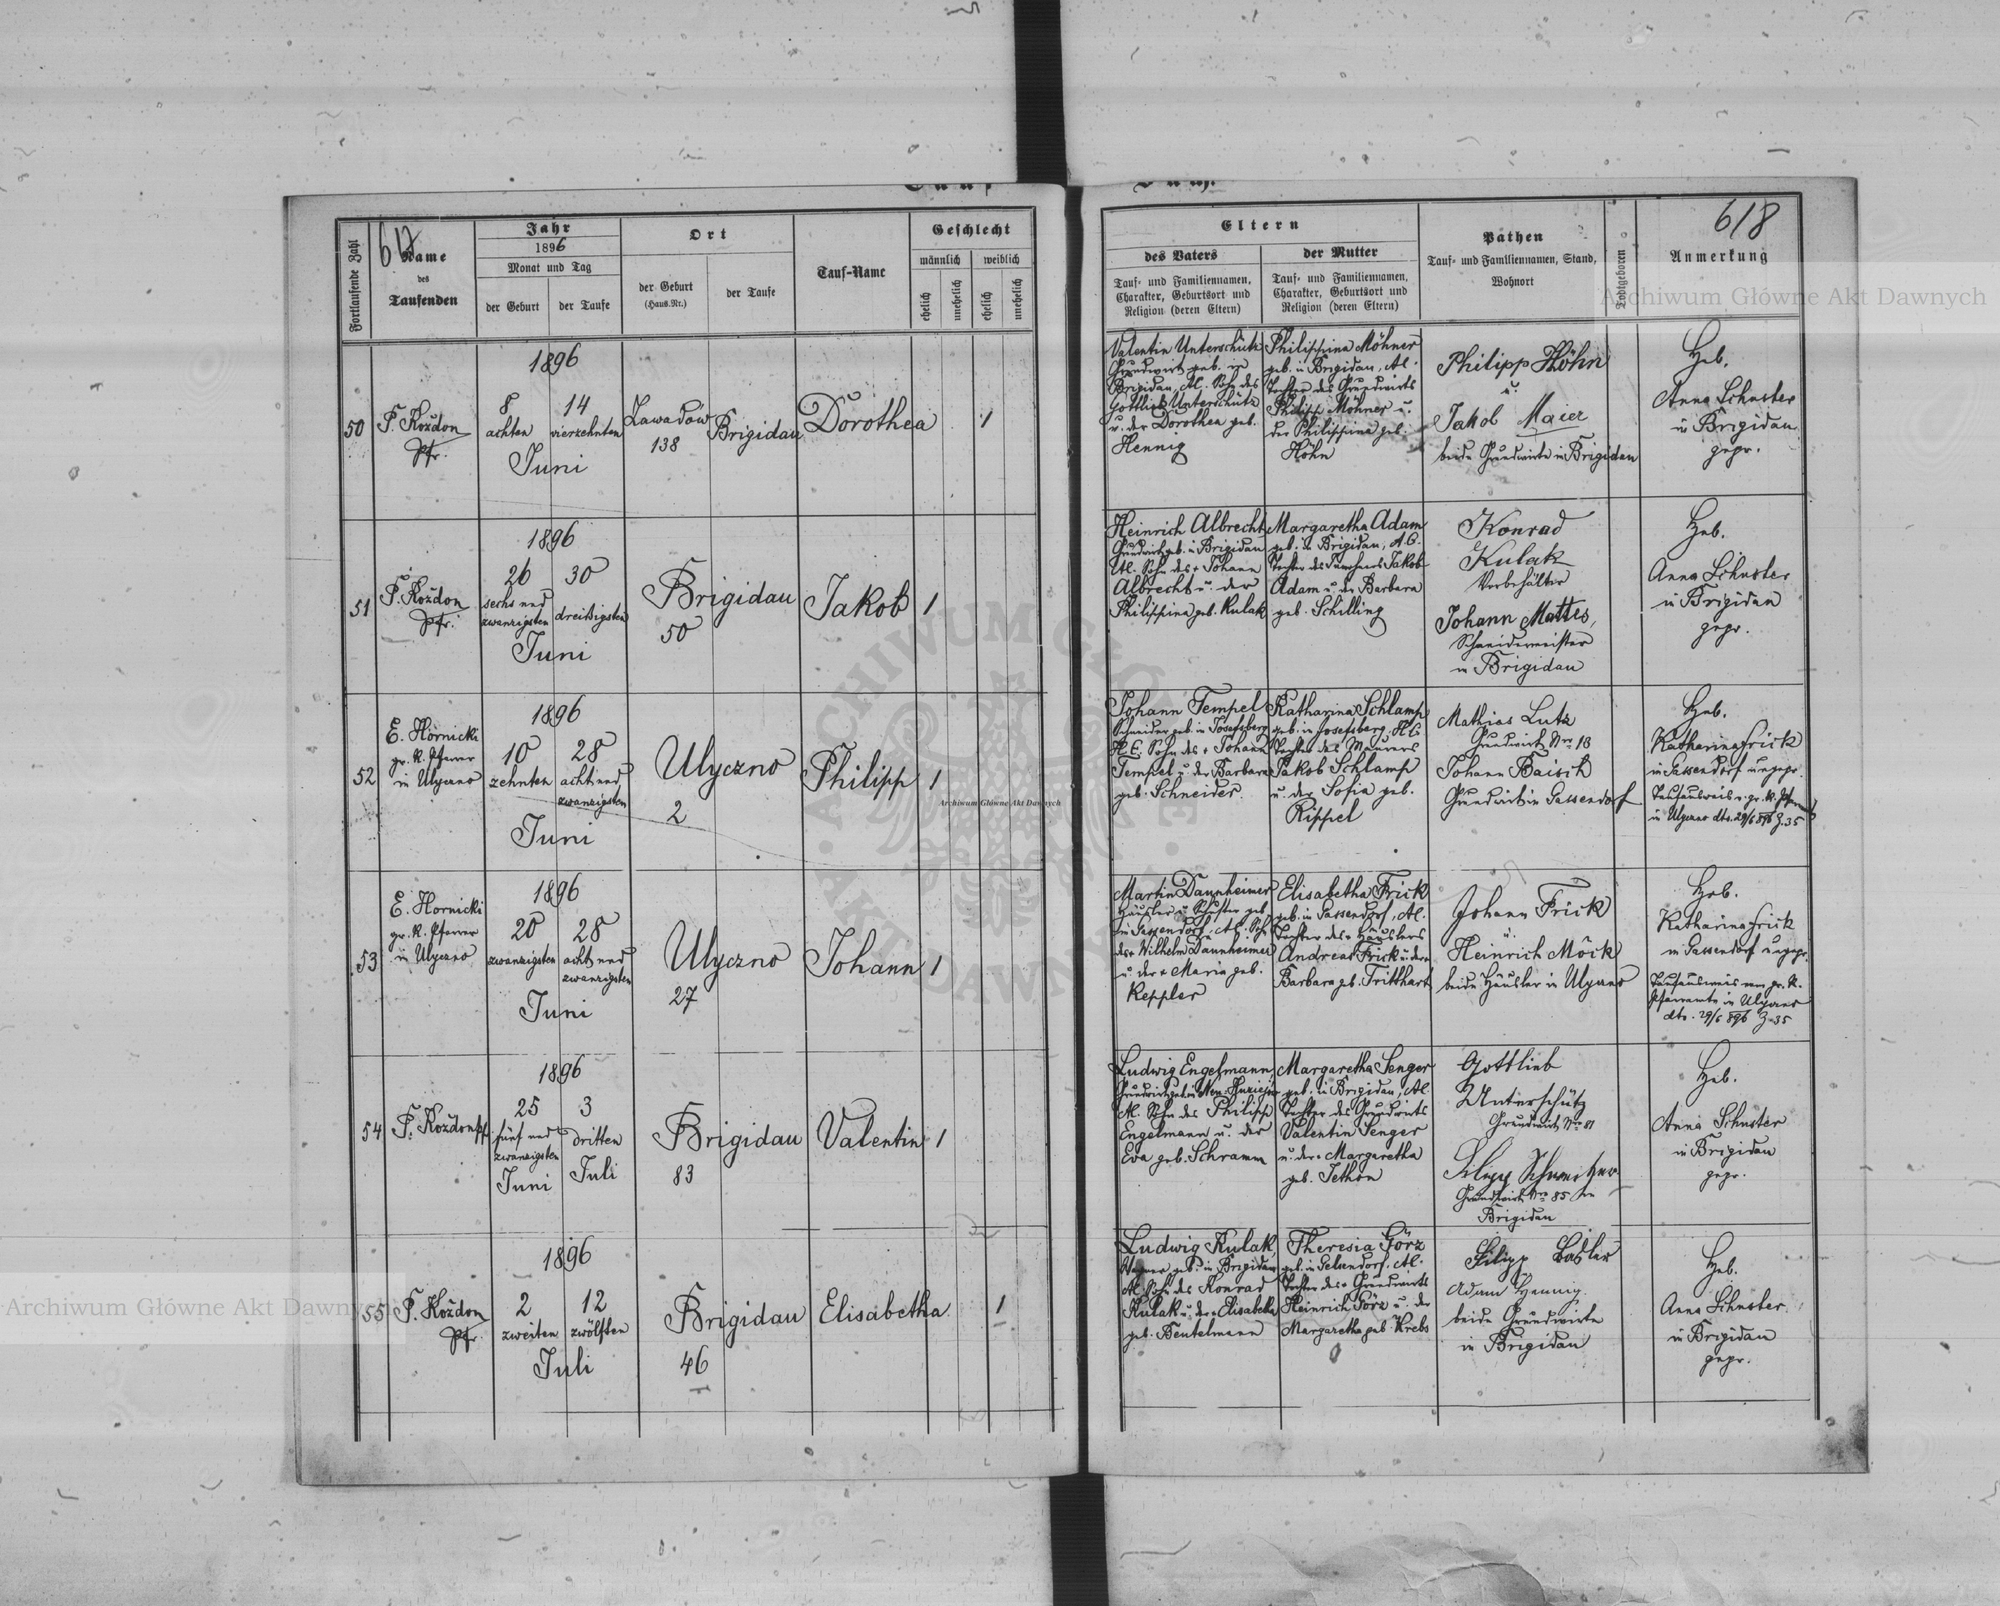 Archiwum Główne Akt Dawnych
617
618
Fortlaufende Zahl
Name
des
Taufenden
Jahr
1896
Monat und Tag
der Geburt
der Taufe
Ort
der Geburt
(Haus.Nr.)
der Taufe
Tauf-Name
Geschlecht
männlich
weiblich
ehelich
unehelich
ehelich
unehelich
Eltern
des Vaters
Tauf- und Familiennamen,
Charakter, Geburtsort und
Religion (deren Eltern)
der Mutter
Tauf- und Familiennamen,
Charakter, Geburtsort und
Religion (deren Eltern)
Pathen
Tauf- und Familiennamen, Stand,
Wohnort
Todtgeboren
Anmerkung
50
F. Koždon
Pfr.
1896
8
achten
14
vierzehnten
Juni
Zawadow
138
Brigidau
Dorothea
1
Valentin Unterschütz
Grundwirt geb. in
Brigidau, Al. Sohn des
Gottlieb Unterschütz
u. der Dorothea geb.
Hennig
Philippina Möhner
geb. in Brigidau, Al.
Tochter des Grundwirts
Philipp Möhner u.
der Philippina geb.
Höhn
Philipp Höhn
u.
Jakob Maier
beide Grundwirte in Brigidau
Heb.
Anna Schuster
in Brigidau
gepr.
51
F. Koždon
Pfr.
1896
26
sechs und
zwanzigsten
30
dreißigsten
Juni
Brigidau
50
Jakob
1
Heinrich Albrecht
Grundwirt geb. in Brigidau
Al. Sohn des + Johann
Albrecht u. der
Philippina geb. Kulak
Margaretha Adam
geb. in Brigidau, A.C.
Tochter des Jakob
Adam u. der Barbara
geb. Schilling
Konrad
Kulak
Vorbehälter
Johann Mattes,
Schneidermeister
in Brigidau
Heb.
Anna Schuster
in Brigidau
gepr.
52
E. Hornicki
gr. K. Pfarrer
in Ulyczno
1896
10
zehnten
28
acht und
zwanzigsten
Juni
Ulyczno
2
Philipp
1
Johann Tempel
Schneider geb. in Josefsberg
H.C. Sohn des + Johann
Tempel u. der Barbara
geb. Schneider.
Katharina Schlamp
geb. in Josefsberg, H.C.
Tochter des Maurers
Jakob Schlamp
u. der Sofia geb.
Rippel
Mathias Lutz
Grundwirt Nro 18
Johann Baisch
Grundwirt in Gassendorf
Heb.
Katharina Frick
in Gassendorf ungepr.
Taufausweis v. gr. K. Pfarramt
in Ulyczno dto. 29/6 896 Z. 35
53
E. Hornicki
gr. K. Pfarrer
in Ulyczno
1896
20
zwanzigsten
28
acht und
zwanzigsten
Juni
Ulyczno
27
Johann
1
Martin Dannheimer
Häusler u. Schuster geb.
in Gassendorf, Al. Sohn
des + Wilhelm Dannheimer
u. der + Maria geb.
Keppler
Elisabetha Frick
geb. in Gassendorf, Al.
Tochter des + Häuslers
Andreas Frick u. der
Barbara geb. Tritthart
Johann Frick
u.
Heinrich Möck
beide Häusler in Ulyczno
Heb.
Katharina Frick
in Gassendorf ungepr.
Taufausweis vom gr. K.
Pfarramte in Ulyczno
dto. 29/6 896 Z. 35
54
F. Koždon Pf.
1896
25
fünf und
zwanzigsten
Juni
3
dritten
Juli
Brigidau
83
Valentin
1
Ludwig Engelmann
Grundwirt geb. in Neu-
Al. Sohn des Philipp
Engelmann u. der
Eva geb. Schramm
Margaretha Senger
geb. in Brigidau, Al
Tochter des Grundwirts
Valentin Senger
u. der + Margaretha
geb. Jethon
Gottlieb
Unterschütz
Grundwirt Nro 81
Filipp Schweitzer
Grundwirt Nro 85 in
Brigidau
Heb.
Anna Schuster
in Brigidau
gepr.
55
F. Koždon
Pfr.
1896
2
zweiten
12
zwölften
Juli
Brigidau
46
Elisabetha
1
Ludwig Kulak,
Wagner geb. in Brigidau
Al. Sohn des Konrad
Kulak u. der + Elisabetha
geb. Beutelmann
Theresia Görz
geb. in Gelsendorf, Al.
Tochter des + Grundwirts
Heinrich Görz u. der
Margaretha geb. Krebs
Filipp Basler
Adam Hennig
beide Grundwirte
in Brigidau
Heb.
Anna Schuster
in Brigidau
gepr.
Archiwum Główne Akt Dawnych
Archiwum Główne Akt Dawnych